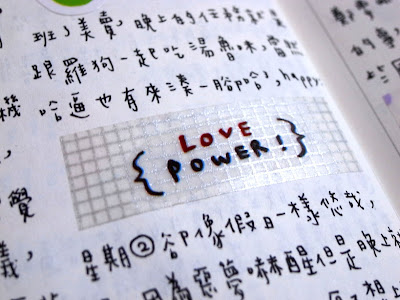 班了美賣，晚上的任務
跟羅狗一起吃湯魯味，當然
機 哈逼也有來湊一腳哈, happy.
LOVE
{ POWER! }
覺
星期②卻像假日一樣悠哉，
義，
因為惡夢嚇醒但是晚上